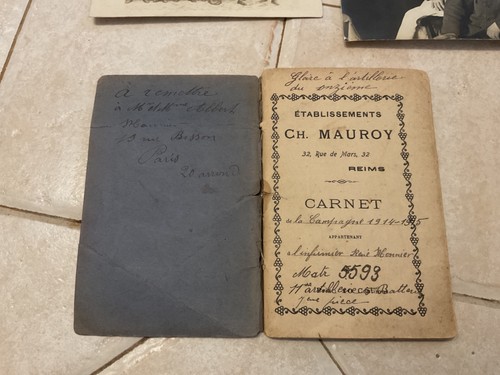 à remettre
à M et Mme Albert
13 rue Bisson
Paris
20 arrond
Gloire à l'artillerie
du onzième
ÉTABLISSEMENTS
CH. MAUROY
32, Rue de Mars, 32
REIMS
CARNET
de la Campagne 1914-1915
APPARTENANT
à l'infirmier René Monnier
Mate 5593
11e artillerie Batter
7ème pièce